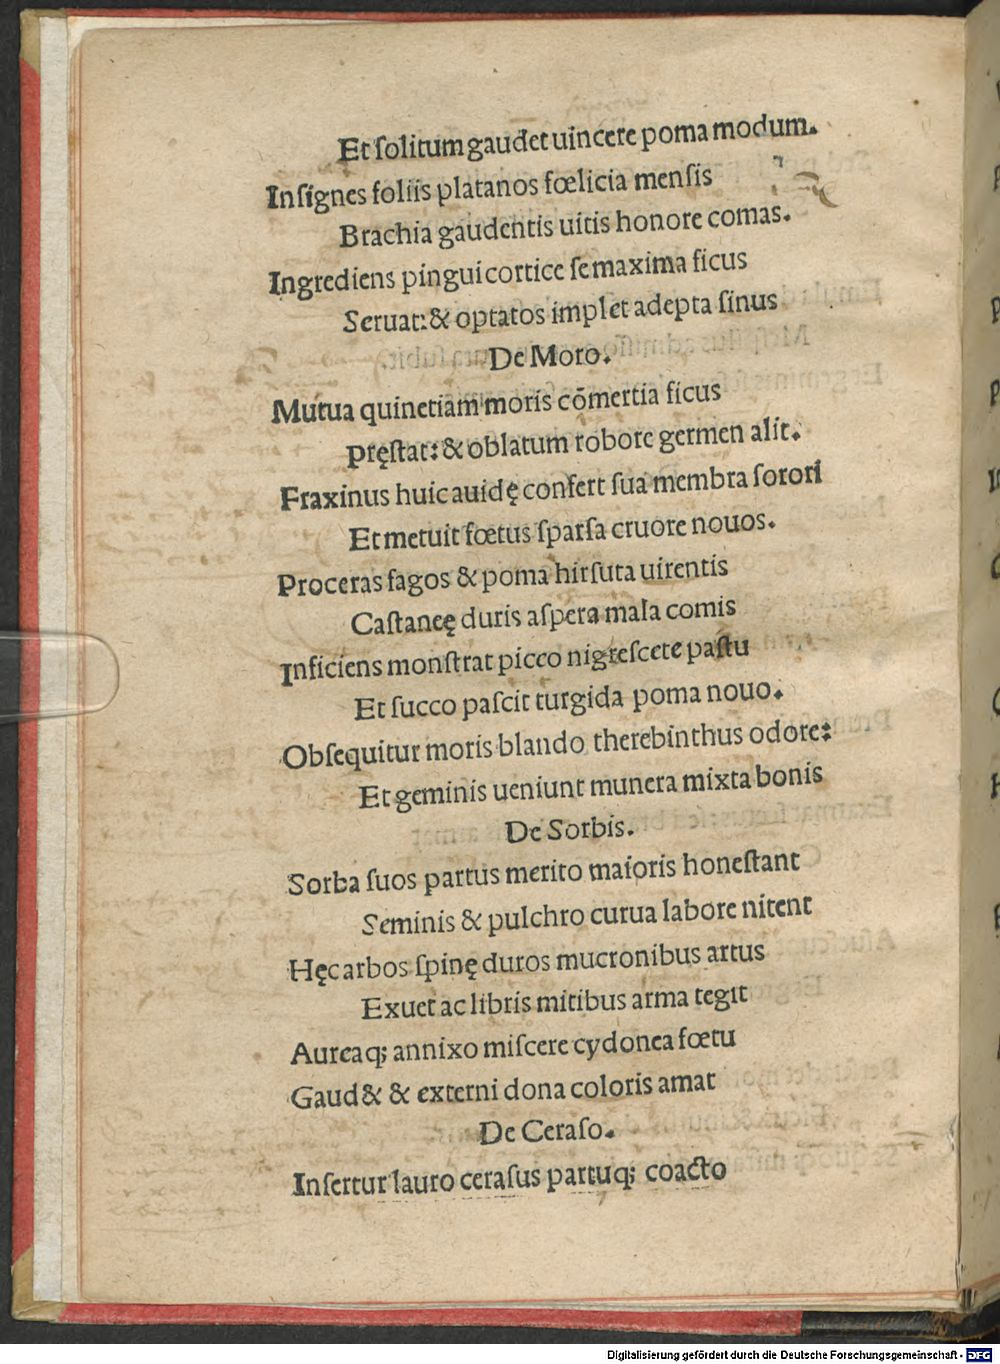 Et ſolitum gaudet uincere poma modum.
Inſignes foliis platanos fœlicia menſis
Brachia gaudentis uitis honore comas.
Ingrediens pingui cortice ſe maxima ficus
Seruat:& optatos implet adepta ſinus
De Moro.
Mutua quinetiam moris cōmertia ficus
Pręſtat:& oblatum robore germen alit.
Fraxinus huic auidę confert ſua membra ſorori
Et metuit fœtus ſparſa cruore nouos.
Proceras fagos & poma hirſuta uirentis
Caſtaneę duris aſpera mala comis
Inficiens monſtrat piceo nigreſcere paſtu
Et ſucco paſcit turgida poma nouo.
Obſequitur moris blando therebinthus odore:
Et geminis ueniunt munera mixta bonis
De Sorbis.
Sorba ſuos partus merito maioris honeſtant
Seminis & pulchro curua labore nitent
Hęc arbos ſpinę duros mucronibus artus
Exuet ac libris mitibus arma tegit
Aureaq; annixo miſcere cydonea fœtu
Gaud& & externi dona coloris amat
De Ceraſo.
Inſertur lauro ceraſus partuq; coacto
Digitalisierung gefördert durch die Deutsche Forschungsgemeinschaft - DFG